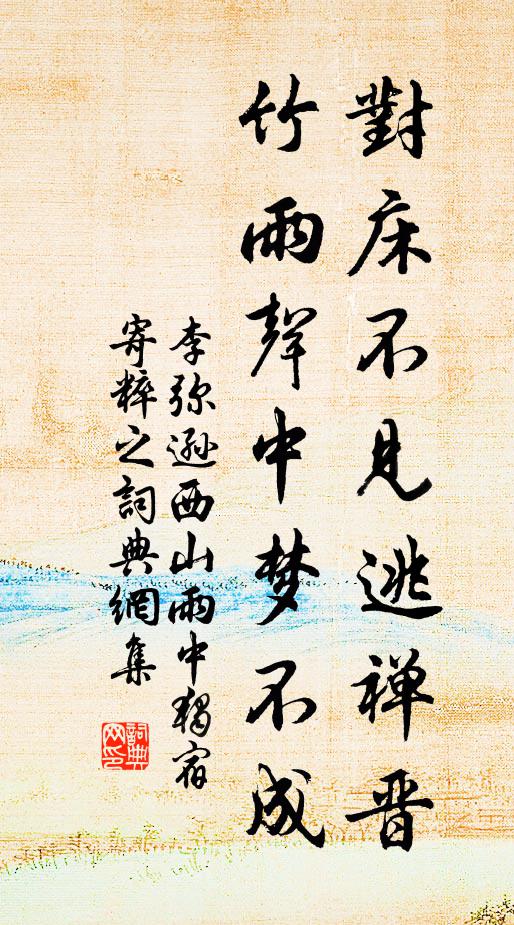 對床不見逃禅晋
竹雨聲中梦不成
李弥遜西山雨中獨宿
寄粹之詞典網集
詞典
网印